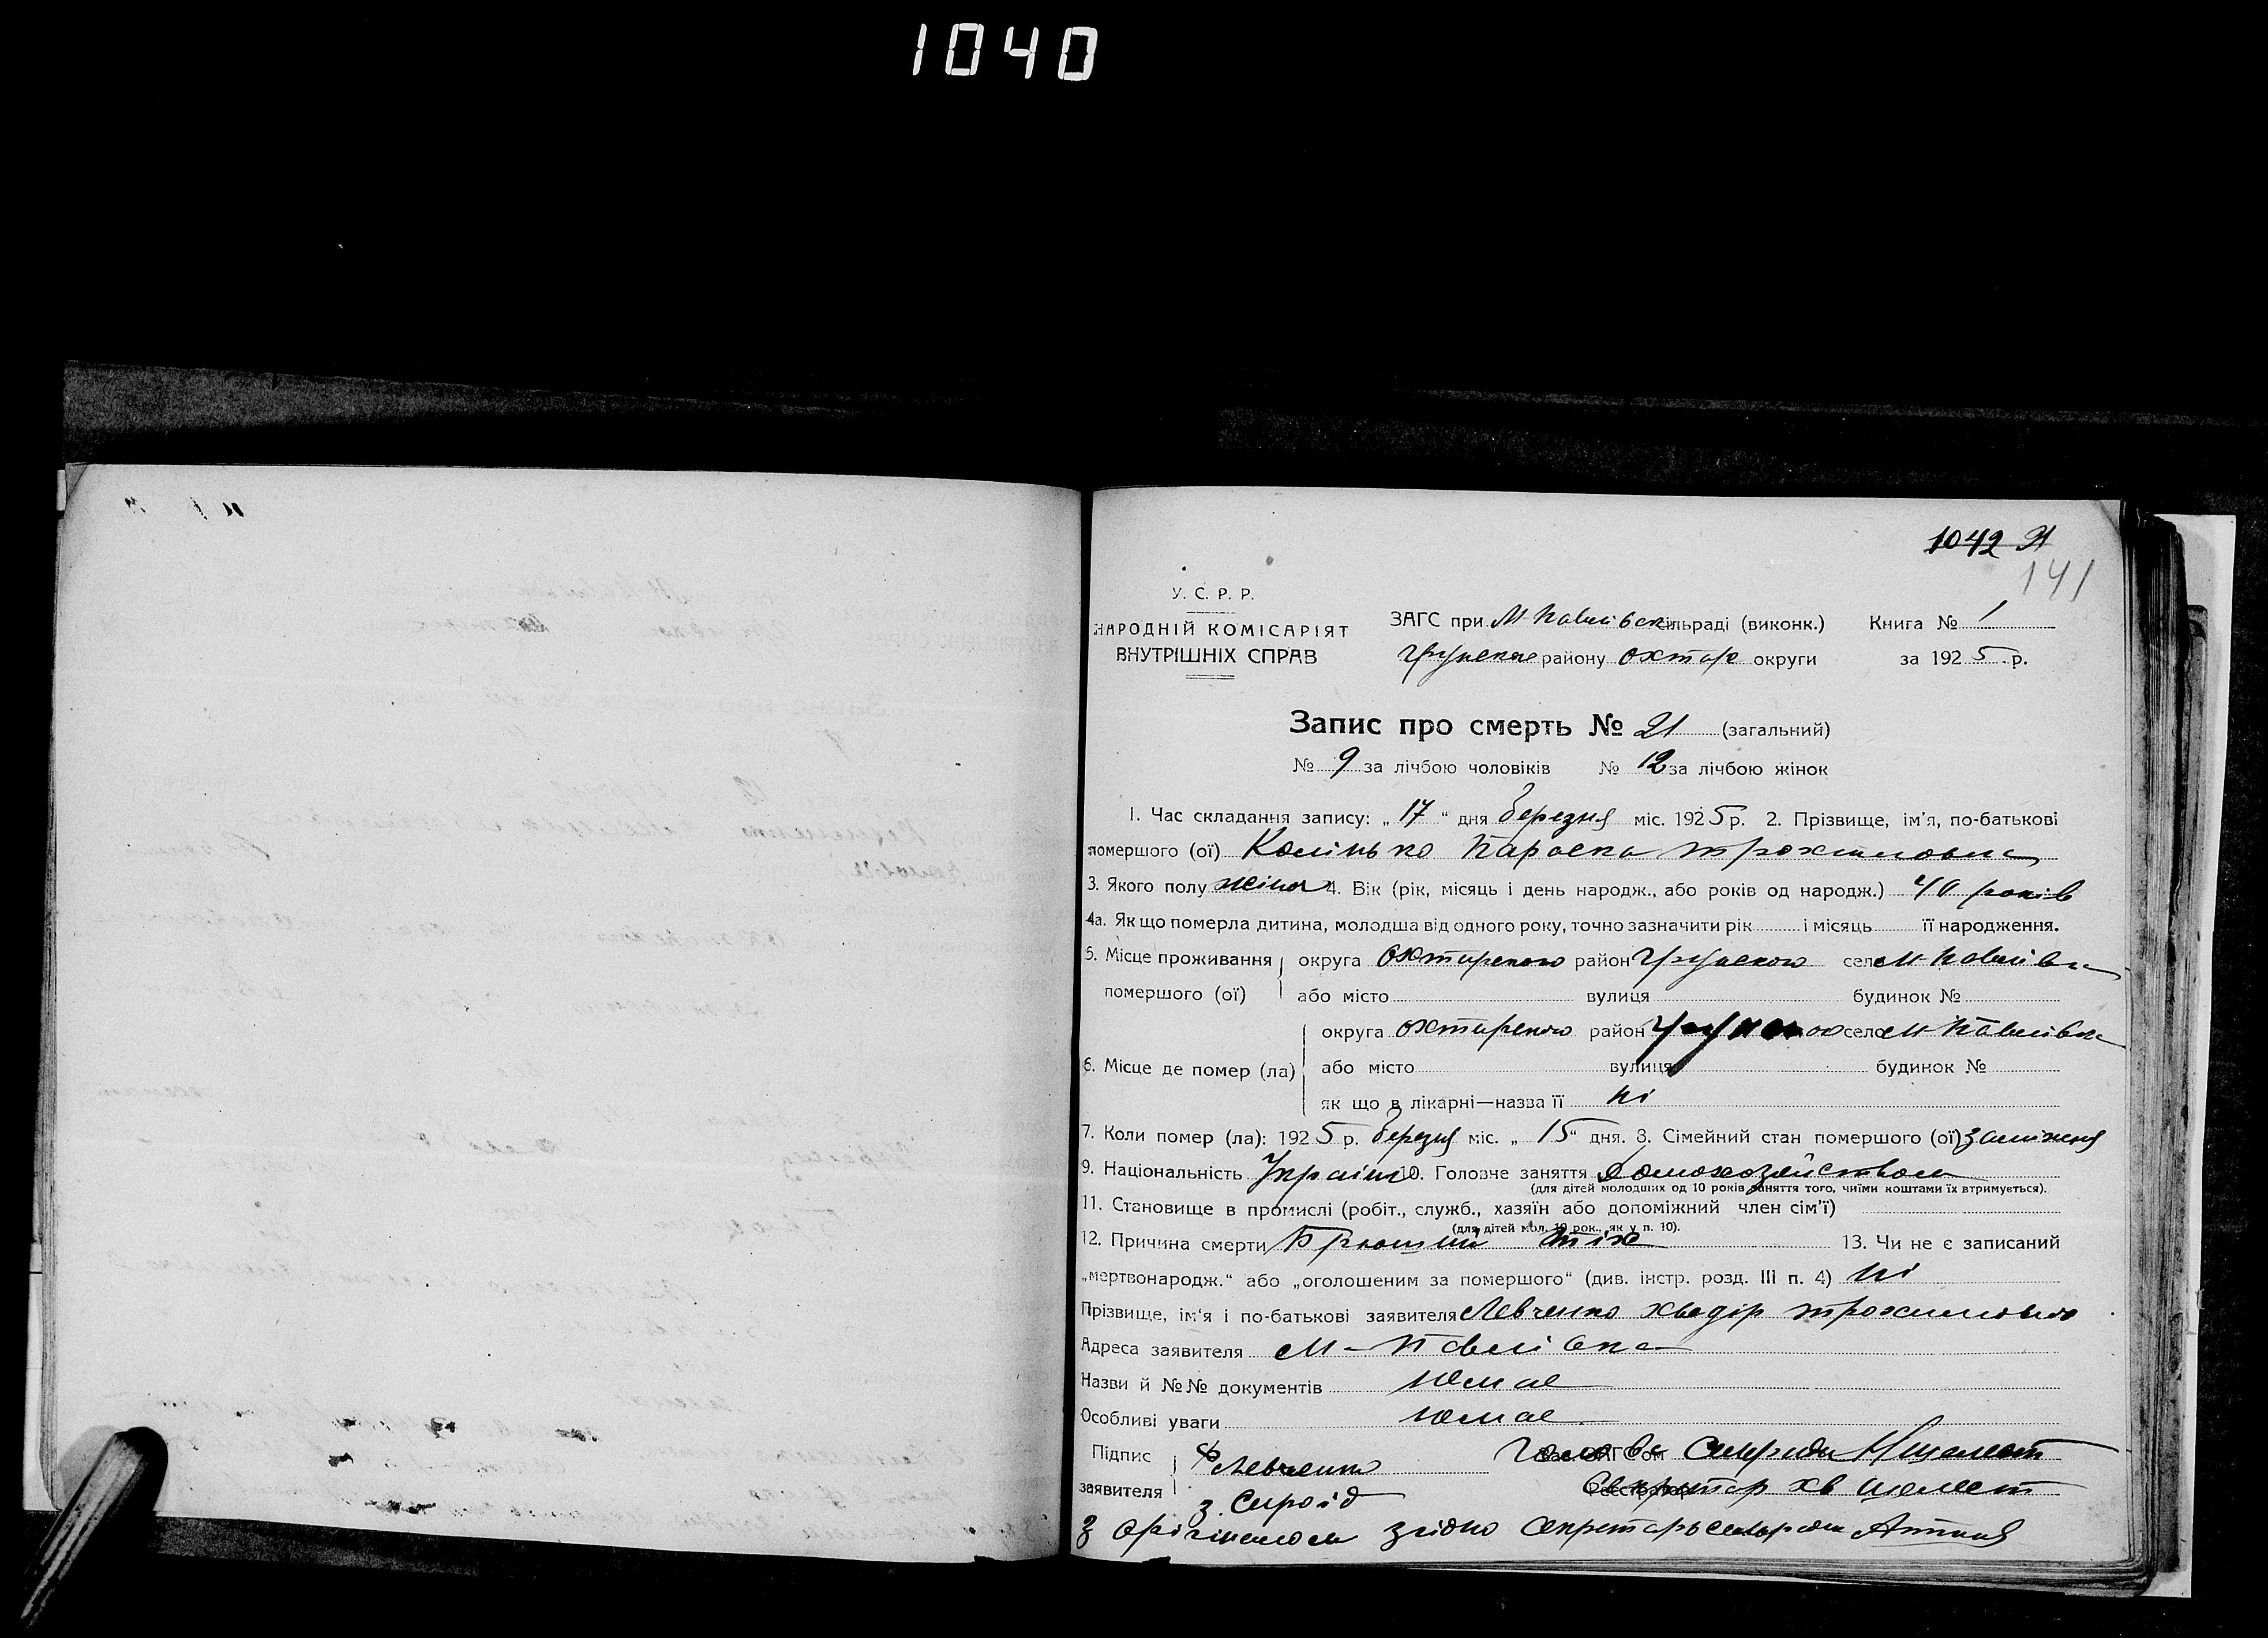 1040
1042 21
141
У. С. Р. Р.
НАРОДНІЙ КОМІСАРІЯТ
ВНУТРІШНІХ СПРАВ
ЗАГС при М Павлівськ сільраді (виконк.) Книга № 1
Грунское району Охтир округи за 1925 р.
Запис про смерть № 21 (загальний)
№ 9 за лічбою чоловіків № 12 за лічбою жінок
1. Час складання запису: „17“ дня березня міс. 1925 р. 2. Прізвище, ім’я, по-батькові
помершого (ої) Колінько Параска Трохимовна
3. Якого полу жіноч 4. Вік (рік, місяць і день народж., або років од народж.) 40 років
4а. Як що померла дитина, молодша від одного року, точно зазначити рік і місяць її народження.
5. Місце проживання округа Охтирского район Грунского село М Павлівка
помершого (ої) або місто вулиця будинок №
округа Охтирского район село М Павлівка
6. Місце де помер (ла) або місто вулиця будинок №
як що в лікарні—назва її ні
7. Коли помер (ла): 1925 р. березня міс. „15“ дня. 8. Сімейний стан помершого (ої) заміжня
9. Національність Україн 10. Головне заняття домохозяйством
(для дітей молодших од 10 років заняття того, чиїми коштами їх втримується).
11. Становище в промислі (робіт., служб., хазяїн або допоміжний член сім’ї)
(для дітей мол. 10 рок., як у п. 10).
12. Причина смерти Брюшний тіх 13. Чи не є записаний
„мертвонародж.“ або „оголошеним за помершого“ (див. інстр. розд. III п. 4) ні
Прізвище, ім’я і по-батькові заявителя Левченко Хведір Трохимович
Адреса заявителя М-Павлівка
Назви й №№ документів немає
Особливі уваги немає
Підпис Ф Левченко Голова Сільради Шелест
заявителя з. Сироід Секретар Хв Шелест
З оригіналом згідно Секретарь сільради